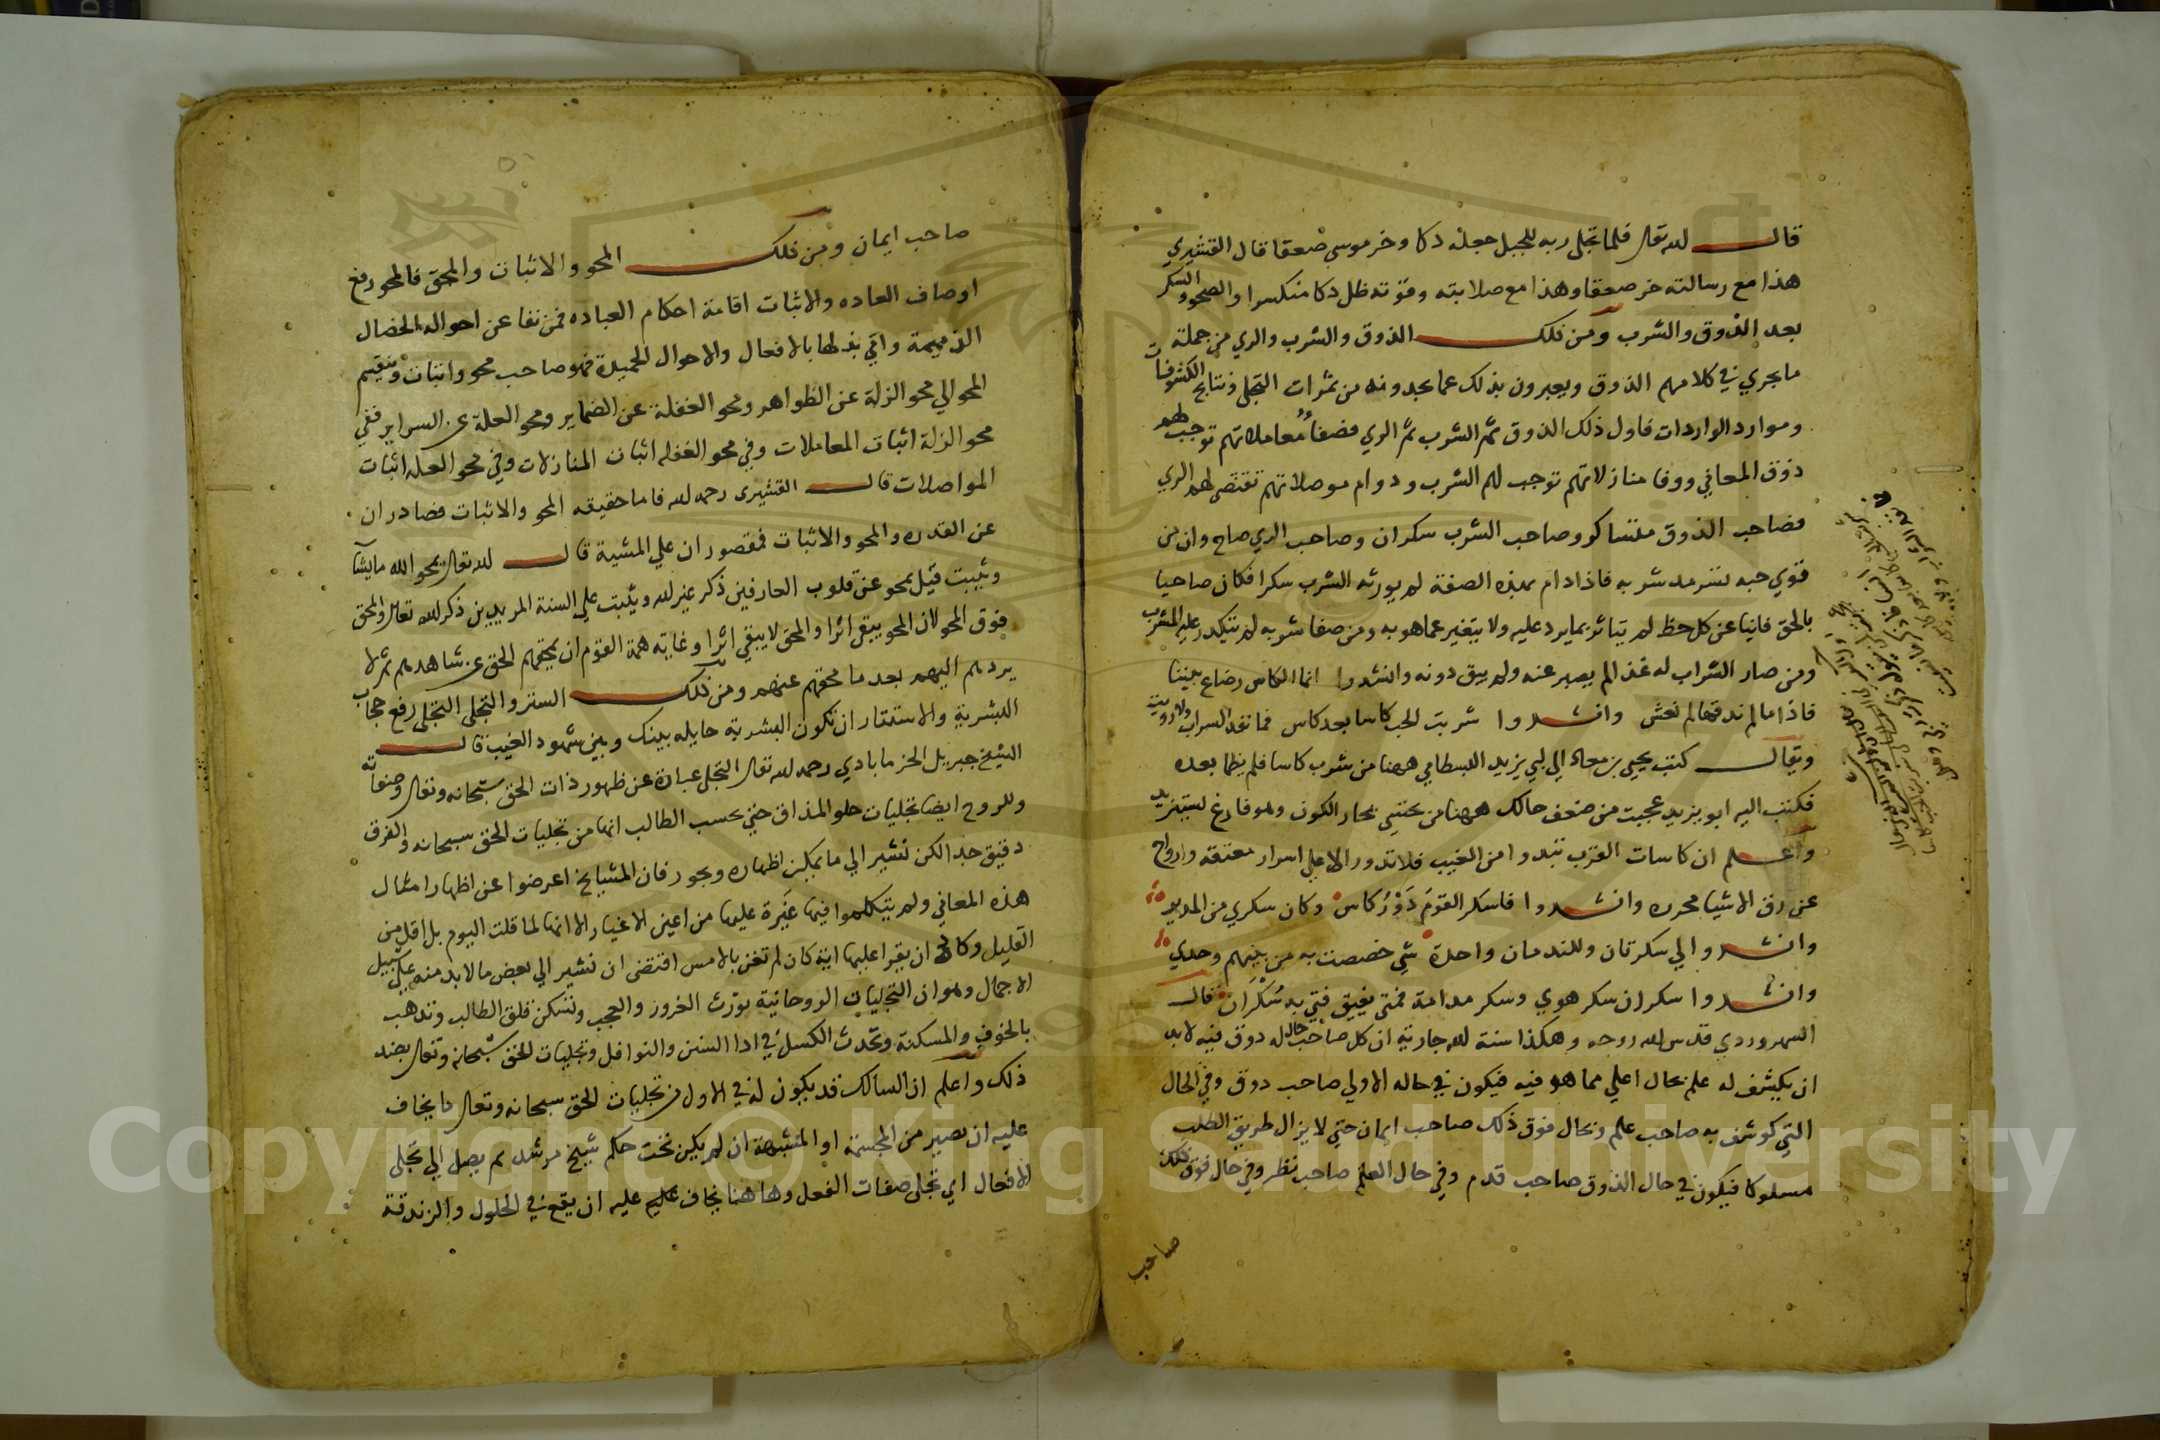 قال الله تعالى فلما تجلى ربه للجبل جعله دكا وخر موسى صعقا قال القشيري
هذا مع رسالته خر صعقا وهذا مع صلابته وقوته ظل دكا منكسرا والصحو والسكر
بعد الذوق والشرب ومن ذلك الذوق والشرب والري من جملة
ما يجري في كلامهم الذوق ويعبرون بذلك عما يجدونه من ثمرات التجلى ونتايج الكشوفات
وموارد الواردات فاول ذلك الذوق ثم الشرب ثم الري فصفاء معاملاتهم توجب لهم
ذوق المعاني ووفا منازلاتهم توجب لهم الشرب ودوام موصلاتهم تقتضى لهم الري
فصاحب الذوق متساكر وصاحب الشرب سكران وصاحب الري صاح وان من
قوي حبه تسرمد شربه فاذا دام بهذه الصفة لم يورثه الشرب سكرا فكان صاحيا
بالحق فانيا عن كل حظ لم يتاثر بما يرد عليه ولا يتغير عما هو به ومن صفا شربه لم يتكدر عليه المشرب
ومن صار الشراب له غذا لم يصبر عنه ولم يبق دونه وانشدوا انما الكاس رضاع بيننا
فاذا ما لم نذقها لم نعش وانشدوا شربت الحب كاسا بعد كاس فما نفد الشراب ولا رويت
ويقال كتب يحيى بن معاذ الى ابي يزيد البسطامي ههنا من شرب كاسا فلم يظما بعده
فكتب اليه ابو يزيد عجبت من ضعف حالك ههنا من يحتسي بحار الكون وهو فارغ يستزيد
واعلم ان كاسات القرب تبدوا من الغيب فلا تدور الا على اسرار معتقه وارواح
عن رق الاشيا محرره وانشدوا فاسكر القوم دور كاس وكان سكري من المدير
وانشدوا لي سكرتان وللندمان واحدة شي خصصت به من بينهم وحدي
وانشدوا سكران سكر هوي وسكر مدامة فمتى يفيق فتى به سكران قال
السهروردي قدس الله روحه وهكذا سنة الله جارية ان كل صاحب حال له ذوق فيه لا بد
ان يكشف له علم بحال اعلى مما هو فيه فيكون في حاله الاولى صاحب ذوق وفي الحال
التي كوشف به صاحب علم وبحال فوق ذلك صاحب ايمان حتى لا يزال طريق الطلب
مسلوكا فيكون في حال الذوق صاحب قدم وفي حال العلم صاحب نظر وفي حال فوق ذلك
صاحب
صاحب ايمان ومن ذلك المحو والاثبات والمحق فالمحو رفع
اوصاف العاده والاثبات اقامة احكام العباده فمن نفا عن احواله الخصال
الذميمة واتي بدلها بالافعال والاحوال الحميدة فهو صاحب محو واثبات وينقسم
المحو الي محو الزلة عن الظواهر ومحو الغفلة عن الضماير ومحو العلة عن السراير ففي
محو الزلة اثبات المعاملات وفي محو الغفله اثبات المنازلات وفي محو العله اثبات
المواصلات قال القشيرى رحمه الله فاما حقيقه المحو والاثبات فصادران
عن القدره والمحو والاثبات فمقصوران علي المشية قال الله تعالى يمحو الله ما يشا
ويثبت قيل يمحو عن قلوب العارفين ذكر غير الله ويثبت علي السنة المريدين ذكر الله تعالى والمحق
فوق المحو لان المحو يبقى اثرا والمحق لا يبقي اثرا وغايه همة القوم ان يمحقهم الحق عن شاهدهم ثم لا
يردهم اليهم بعد ما محقهم عنهم ومن ذلك الستر والتجلى التجلى رفع حجاب
البشرية والاستتار ان تكون البشرية حايله بينك وبين شهود الغيب قال
الشيخ جبريل الخرمابادي رحمه الله تعالى التجلى عبارة عن ظهور ذات الحق سبحانه وتعالى وصفاته
وللروح ايضا تجليات حلو المذاق حتى يحسب الطالب انها من تجليات الحق سبحانه والفرق
دقيق جدا لكن نشير الي ما يمكن اظهاره ويجوز فان المشايخ اعرضوا عن اظهار امثال
هذه المعاني ولم يتكلموا فيها غيرة عليها من اعين الاغيار الا انها لما قلت اليوم بل اقل من
القليل وكاد ان يقرا عليها اية كان لم تغن بالامس اقتضى ان نشير الي بعض ما لا بد منه علي سبيل
الاجمال وهو ان التجليات الروحانية تورث الغرور والعجب وتسكن قلق الطالب وتذهب
بالخوف والمسكنة وتحدث الكسل في ادا السنن والنوافل وتجليات الحق سبحانه وتعالى بضد
ذلك واعلم ان السالك قد يكون له في الاول من تجليات الحق سبحانه وتعالى ما يخاف
عليه ان يصير من المجسمة او المشبهة ان لم يكن تحت حكم شيخ مرشد ثم يصل الي تجلى
الافعال اي تجلى صفات الفعل وهاهنا يخاف عليه ان يقع في الحلول والزندقة
Copyright © King Saud University